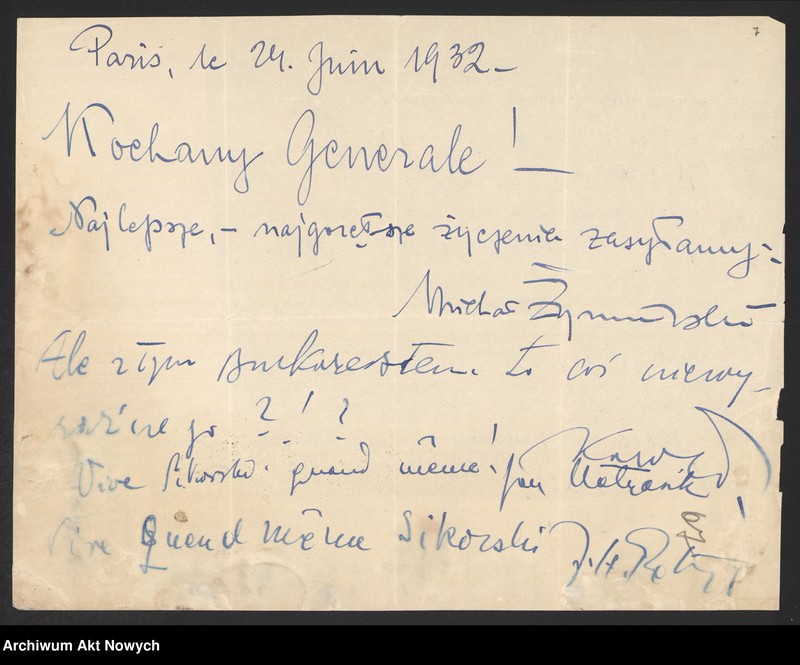 7
Paris, le 24. Juin 1932 –
Kochany Generale! –
Najlepsze, – najgorętsze życzenia zasyłamy: –
Michał Żymierski
Ale z tym Bukaresztem to coś niewy-
raźnego ? ! ?
Vive Sikorski quand même! Jan
Vive Quand même Sikorski
67
Archiwum Akt Nowych